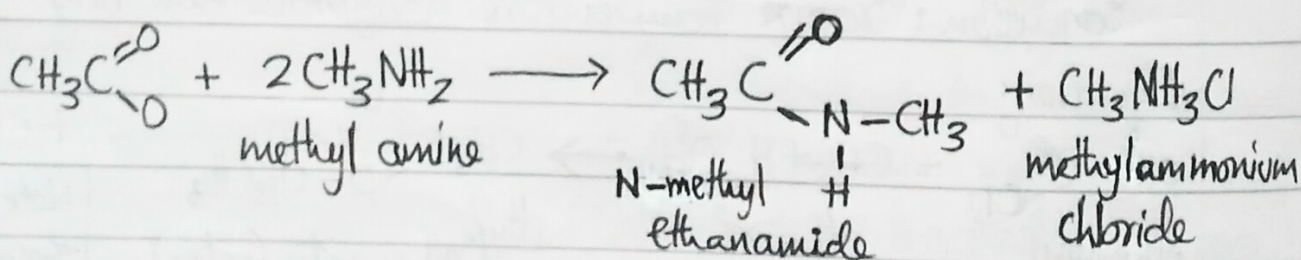 CH₃C(=O)–O + 2CH₃NH₂ ⟶ CH₃C(=O)–N(–H)–CH₃ + CH₃NH₃Cl
methyl amine
N-methyl
ethanamide
methylammonium
chloride